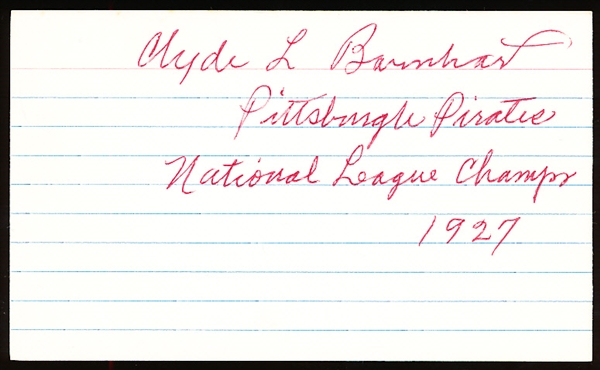 Clyde L Barnhart
Pittsburgh Pirates
National League Champs
1927